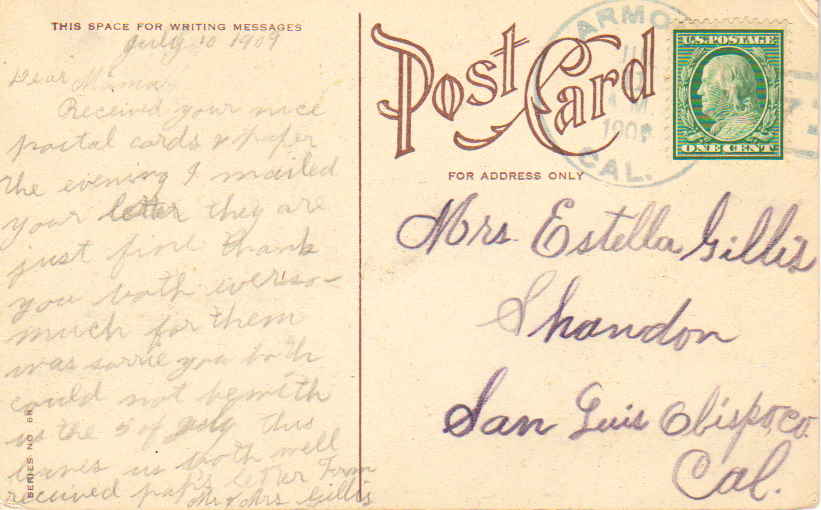 THIS SPACE FOR WRITING MESSAGES
July 10 1909
Dear Mama
Received your nice
postal cards & paper
the evening I mailed
your letter they are
just fine thank
you both everso-
much for them
was sorrie you both
could not be with
us the 5 of July this
leaves us both well
received papa's letter From
Mr & Mrs Gillis
SERIES NO
Post Card
FOR ADDRESS ONLY
ARMO
190
CAL.
U.S. POSTAGE
ONE CENT
Mrs. Estella Gillis
Shandon
San Luis Obispo, co.
Cal.